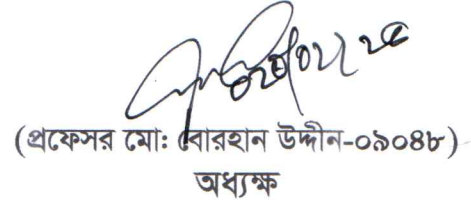 (প্রফেসর মো: বোরহান উদ্দীন-০৯০৪৮)
অধ্যক্ষ